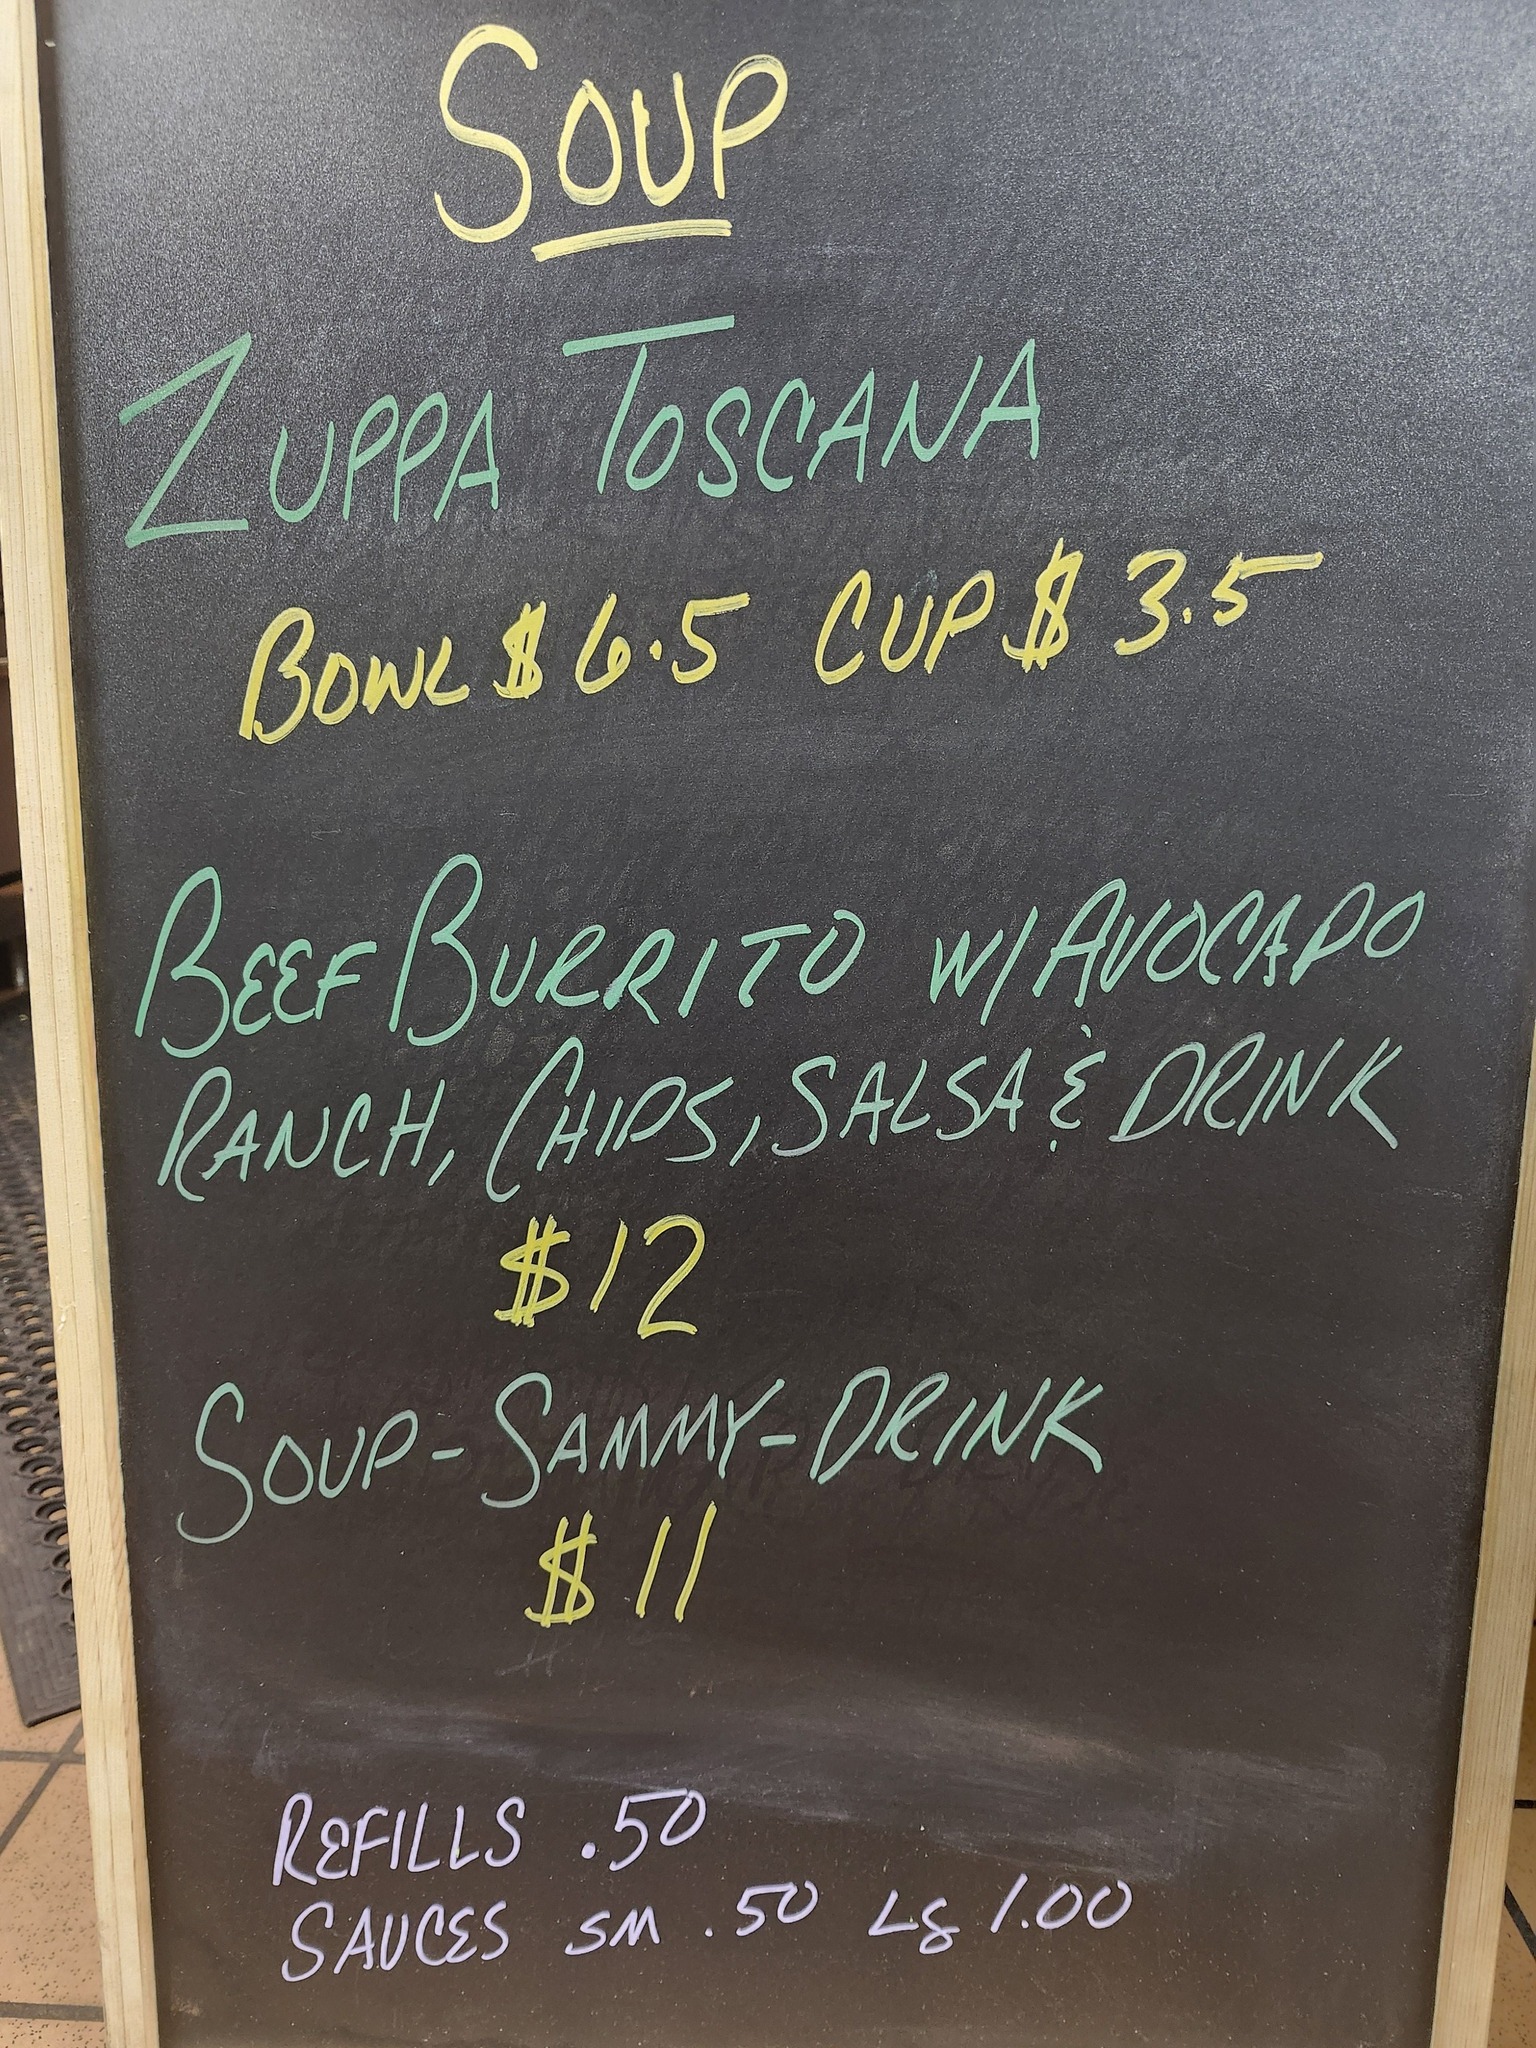 SOUP
ZUPPA TOSCANA
BOWL $6.5 CUP $3.5
BEEF BURRITO W/AVOCADO
RANCH, CHIPS, SALSA & DRINK
$12
SOUP-SAMMY-DRINK
$11
REFILLS .50
SAUCES SM .50 Lg 1.00